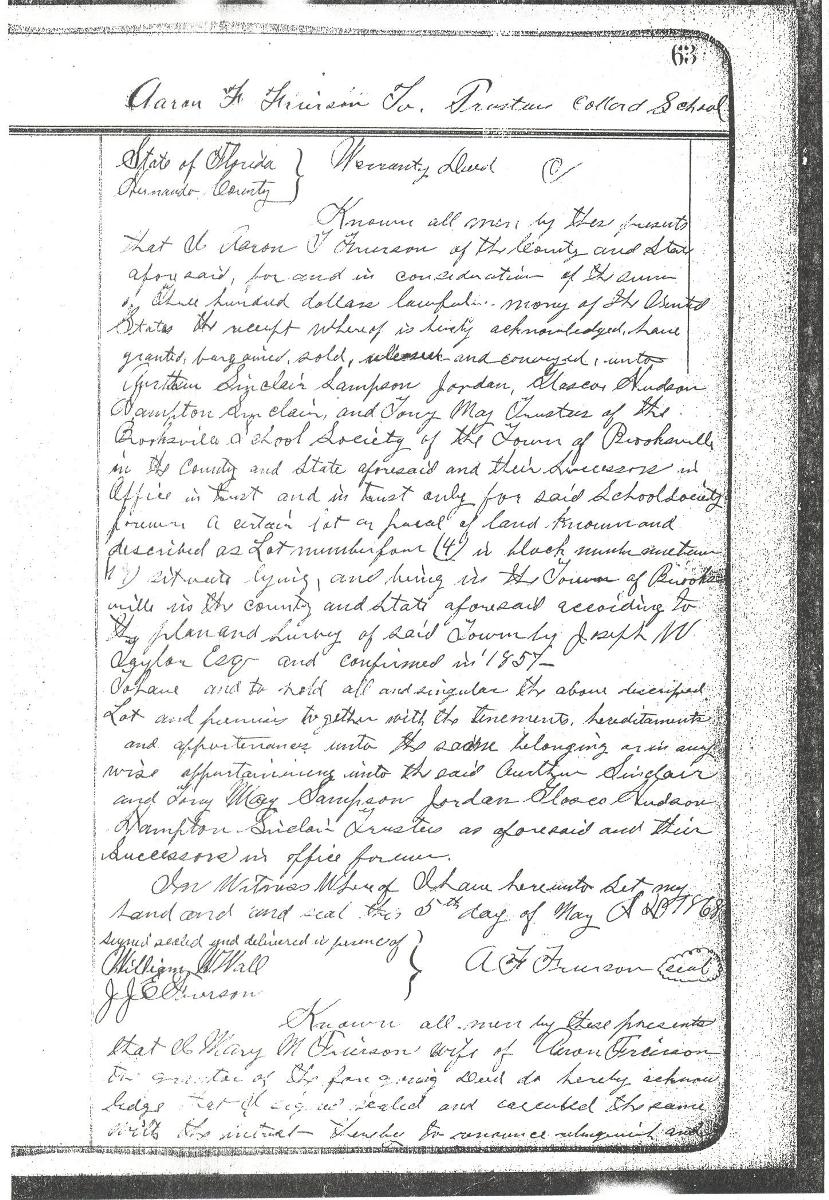 63
Aaron F Frierson To. Trustees Collord School
State of Florida
Hernando County
Warranty Deed
Known all men by thes presents
that I Aaron T Frierson of the County and State
aforesaid, for and in consideration of the sum
of Three hundred dollars lawful mony of the United
States the receipt whereof is hereby acknowledged, have
granted, bargained, sold, and conveyed, unto
Aurthur Sinclair Sampson Jordan, Glasco Hudson
Hampton Sinclair, and Tony May Trustees of the
Brooksville School Society of the Town of Brooksville
in the County and State aforesaid and their Successors in
Office in trust and in trust only for said School society
forever a certain lot or parcel of land known and
described as Lot number four (4) in block
situate lying, and being in the Town of Brooks
ville in the county and State aforesaid according to
the plan and survey of said Town by Joseph W
Taylor Esqr and confirmed in 1857
To have and to hold all and singular the above described
Lot and premises together with the tenements, hereditaments
and appertenances unto the same belonging or in any
wise appertaining unto the said Aurthur Sinclair
and Tony May Sampson Jordan Glasco Hudson
Hampton Sinclair Trustees as aforesaid and their
Successors in office forever.
In Witness Whereof I have hereunto set my
hand and and seal this 5th day of May A D 1868
signed sealed and delivered in presence of
William W Wall
J J E Frierson
A F Frierson seal
Known all men by these presents
that I Mary M Frierson wife of Aaron Frierson
the grantor of the foregoing Deed do hereby acknow
ledge that I signed sealed and executed the same
with the intent thereby to renounce relinquish and